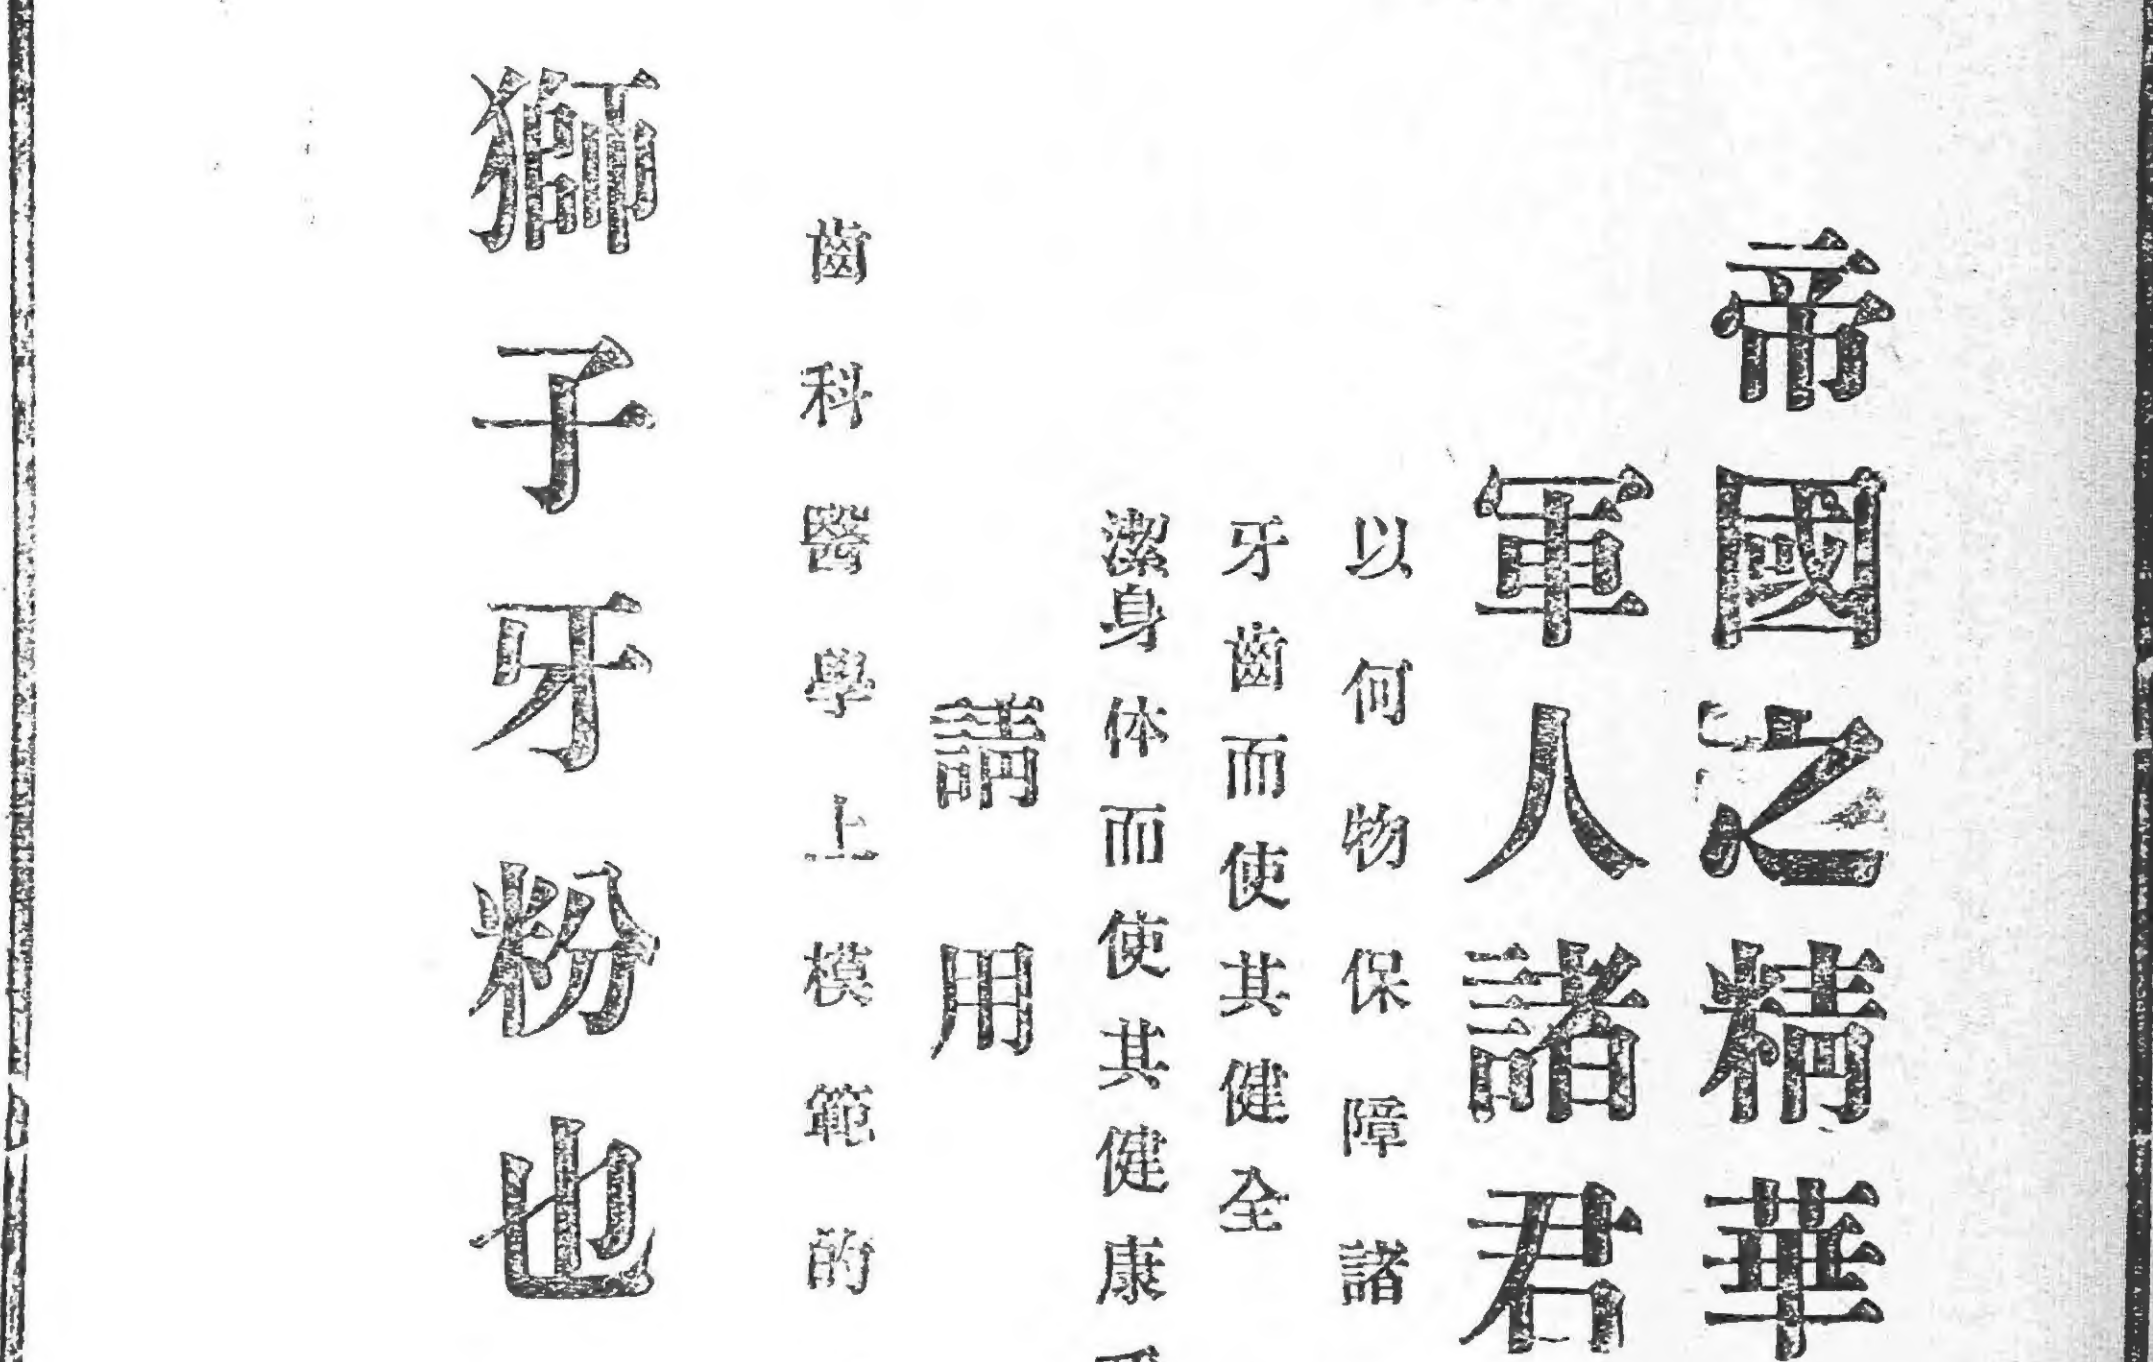 帝國之精華
軍人諸君
以何物保障諸
牙齒而使其健全
潔身体而使其健康
請用
齒科醫學上模範的
獅子牙粉也